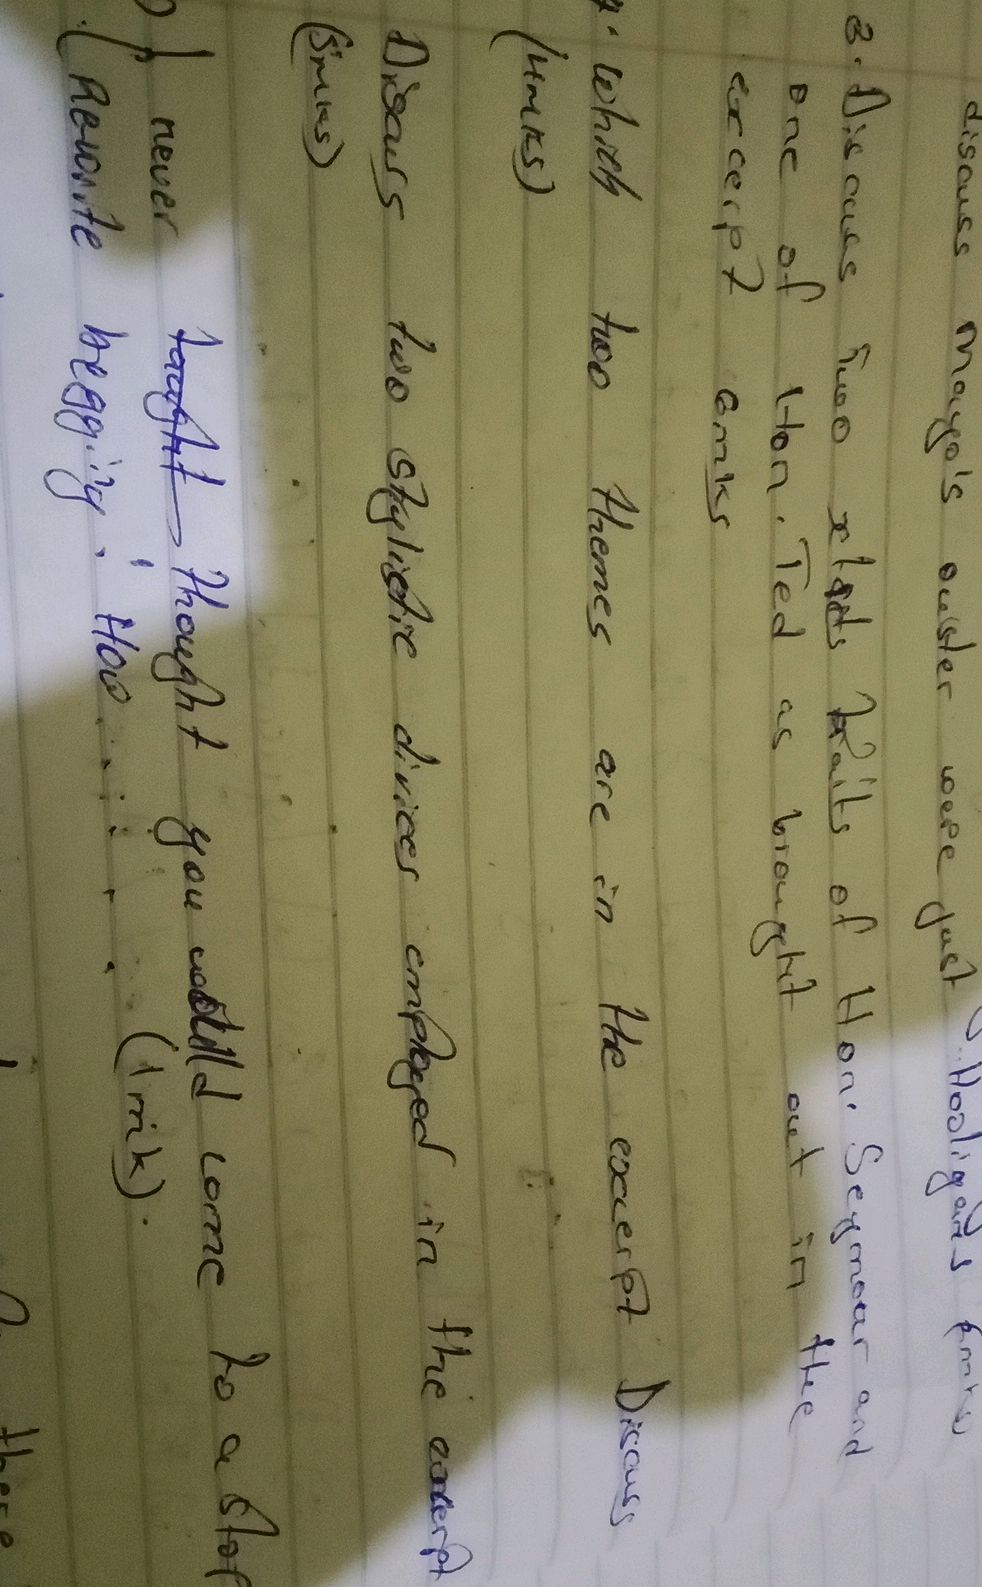 discuss Mayo's ouster were just Hooligans
3. Discuss two traits of Hon. Seymour and
one of Hon. Ted as brought out in the
excerpt 6mks
4. Which two themes are in the excerpt Discuss
(4mks)
Discuss two stylistic divices employed in the excerpt
(5mks)
I never taught thought you would come to a stop
Rewrite begging: How....... (1mk).
there